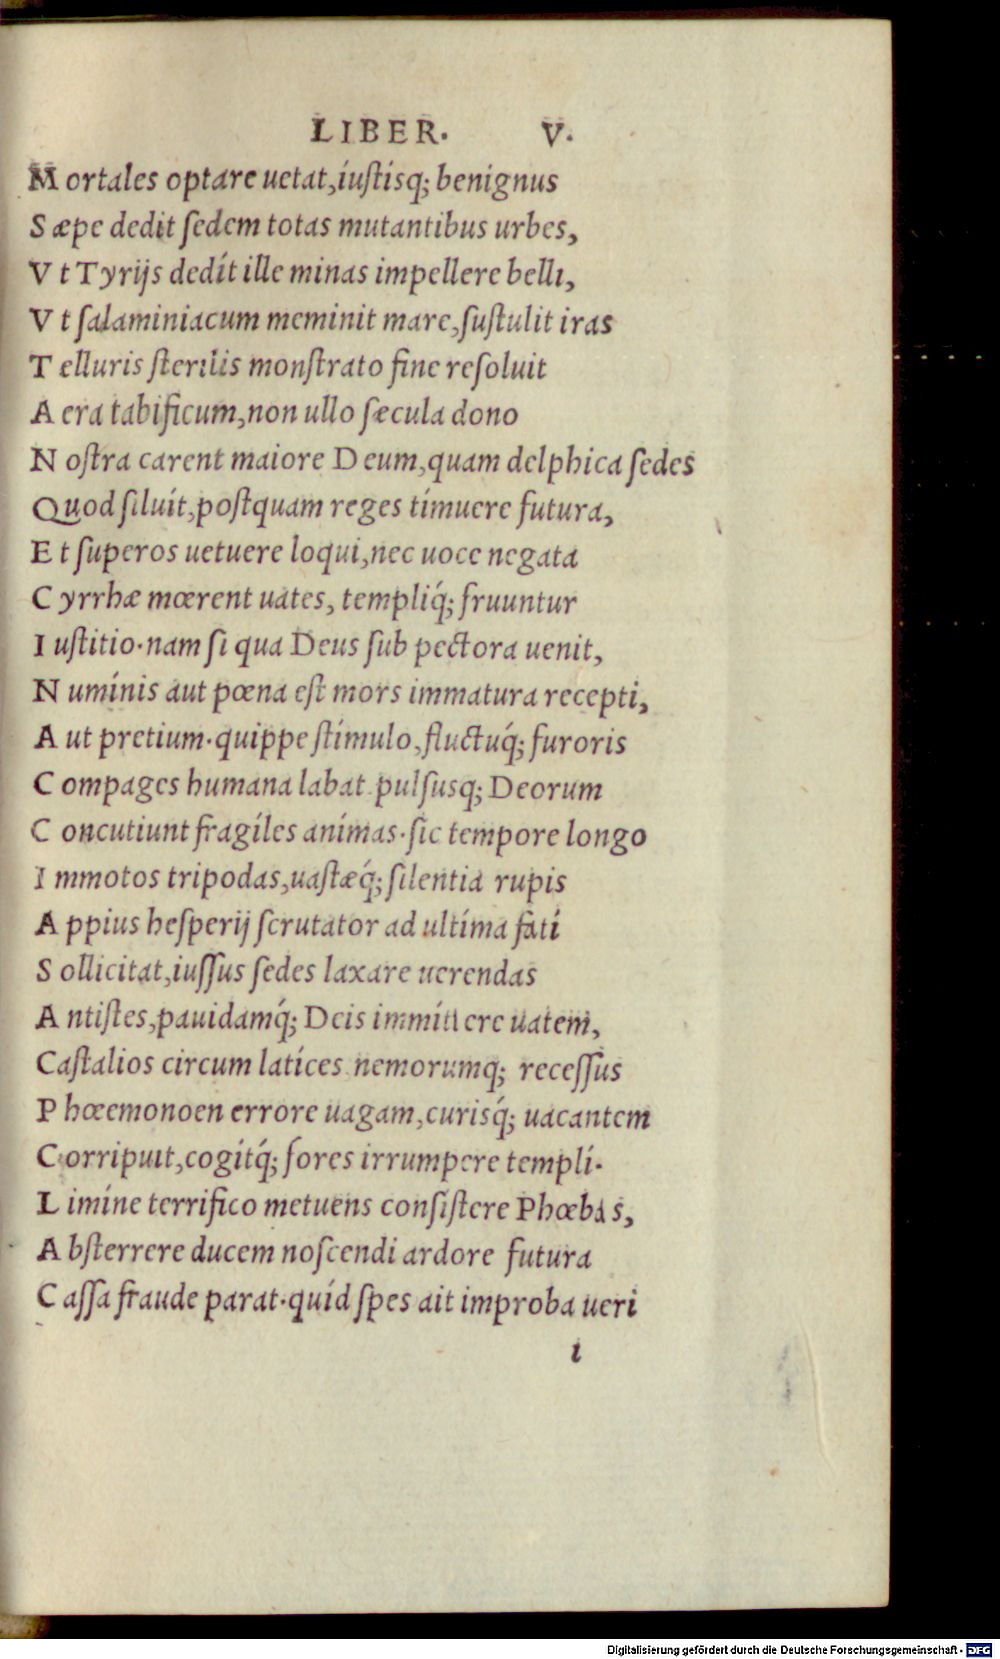 LIBER. V.
M ortales optare uetat,iustisq; benignus
S æpe dedit sedem totas mutantibus urbes,
V t Tyrijs dedit ille minas impellere belli,
V t salaminiacum meminit mare,sustulit iras
T elluris sterilis monstrato fine resoluit
A era tabificum,non ullo sæcula dono
N ostra carent maiore Deum,quam delphica sedes
Quod siluit,postquam reges timuere futura,
E t superos uetuere loqui,nec uoce negata
C yrrhæ mœrent uates, templiq́; fruuntur
I ustitio.nam si qua Deus sub pectora uenit,
N uminis aut pœna est mors immatura recepti,
A ut pretium.quippe stimulo,fluctuq́; furoris
C ompages humana labat pulsusq; Deorum
C oncutiunt fragiles animas.sic tempore longo
I mmotos tripodas,uastæq́; silentia rupis
A ppius hesperij scrutator ad ultima fati
S ollicitat,iussus sedes laxare uerendas
A ntistes,pauidamq́; Deis immittere uatem,
Castalios circum latices nemorumq; recessus
P hœemonoen errore uagam,curisq́; uacantem
Corripuit,cogitq́; fores irrumpere templi.
L imine terrifico metuens consistere Phœbas,
A bsterrere ducem noscendi ardore futura
C assa fraude parat.quid spes ait improba ueri
i
Digitalisierung gefördert durch die Deutsche Forschungsgemeinschaft - DFG